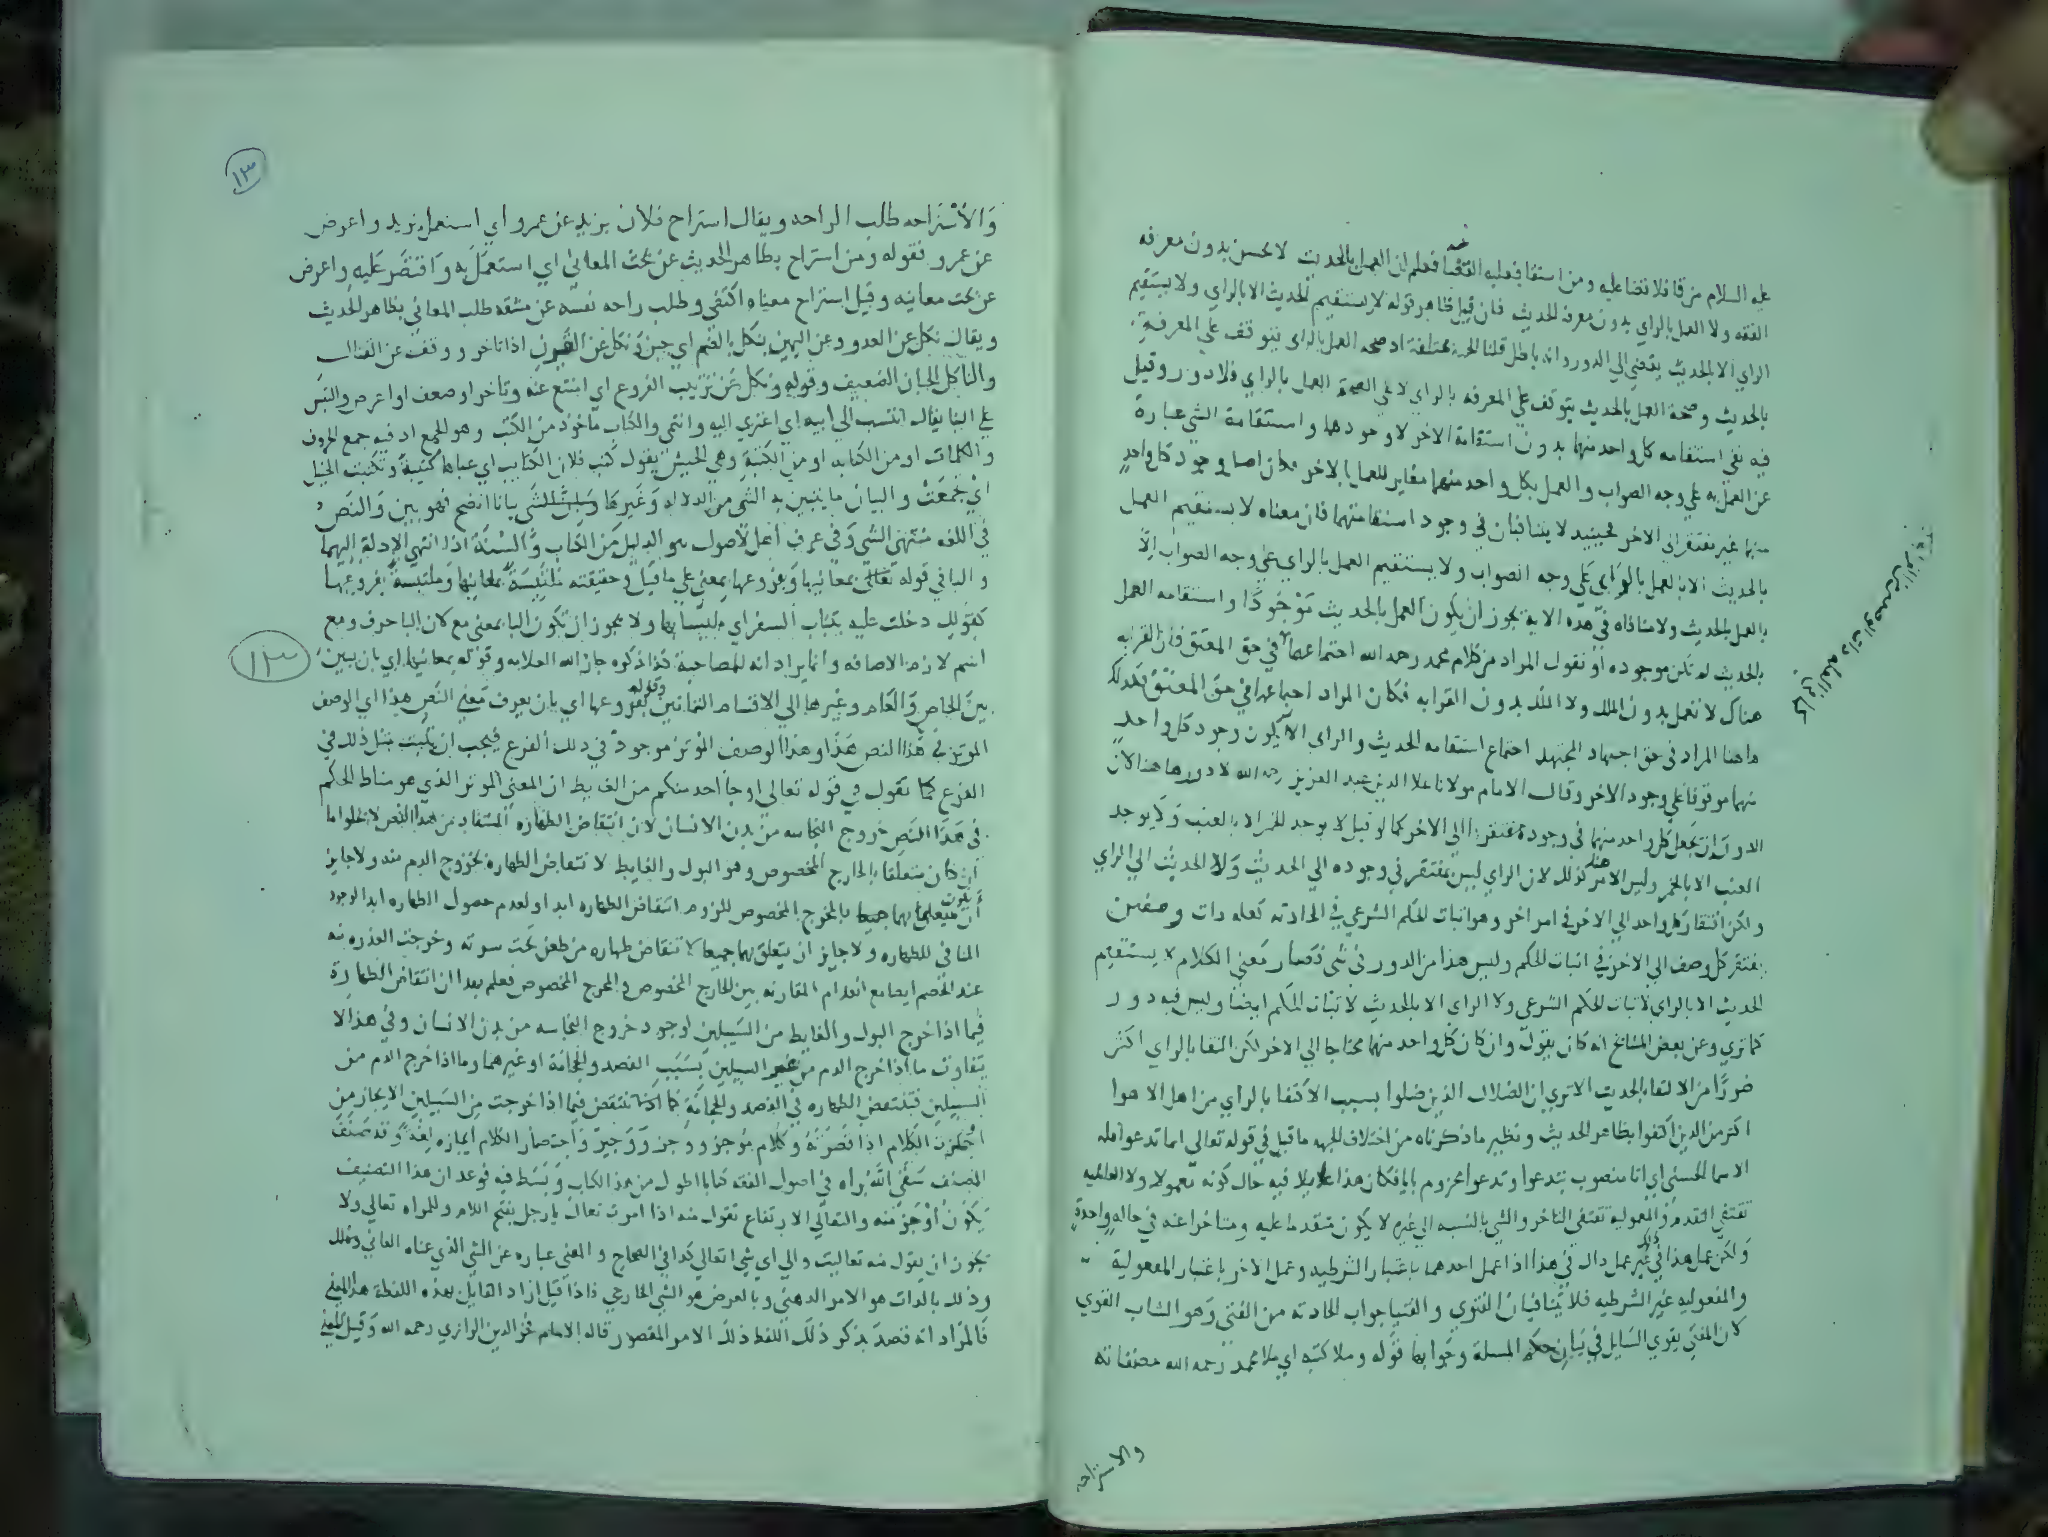 عليه السلام من قا فلا قضا عليه ومن استقا فعليه القضا فعلم ان العمل بالحديث لا يحسن بدون معرفه
الفقه ولا العمل بالراي بدون معرفه الحديث فان قيل ظاهر قوله لا يستقيم الحديث الا بالراي ولا يستقيم
الراي الا بالحديث يقتضي الي الدور وانه باطل قلنا الجهه مختلفة اذ صحه العمل بالراي يتوقف علي المعرفة
بالحديث وصحة العمل بالحديث يتوقف علي المعرفه بالراي لا علي صحة العمل بالراي فلا دور وقيل
فيه نفي استقامه كل واحد منهما بدون استقامة الاخر لا وجودهما واستقامة الشي عبارة
عن العمل به علي وجه الصواب والعمل بكل واحد منهما مغاير للعمل بالاخر وجود كل واحد
منهما غير مفتقر الي الاخر فحينيذ لا يتنافيان في وجود استقامتهما فان معناه لا يستقيم العمل
بالحديث الا بالعمل بالراي علي وجه الصواب ولا يستقيم العمل بالراي علي وجه الصواب الا
بالعمل بالحديث ولا منافاة في هذه الاية يجوز ان يكون العمل بالحديث موجودا واستقامه العمل
بالحديث لم تكن موجوده او نقول المراد من كلام محمد رحمه الله اجتماعهما في حق المعتق فان القرابه
هناك لا تعمل بدون الملك ولا الملك بدون القرابه فكان المراد اجتماعهما في حق المعتق فكذلك
هاهنا المراد في حق اجتهاد المجتهد اجتماع استقامه الحديث والراي لا يكون وجود كل واحد
منهما موقوفا علي وجود الاخر وقال الامام مولانا علا الدين عبد العزيز رحمه الله لا دور هاهنا لان
الدور ان يجعل كل واحد منهما في وجوده مفتقرا الي الاخر كما لو قيل لا يوجد الخمر الا بالعنب ولا يوجد
العنب الا بالخمر وليس الامر هنا كذلك لان الراي ليس بمفتقر في وجوده الي الحديث ولا الحديث الي الراي
ولكن افتقار كل واحد الي الاخر في امر اخر وهو اثبات الحكم الشرعي في الحادثه كعله ذات وصفين
يفتقر كل وصف الي الاخر في اثبات الحكم وليس هذا من الدور في شي فصار معني الكلام لا يستقيم
الحديث الا بالراي لاثبات الحكم الشرعي ولا الراي الا بالحديث لاثبات الحكم ايضا وليس فيه دور
كما تري وعن بعض المشايخ انه كان يقول وان كان كل واحد منهما محتاجا الي الاخر لكن الاكتفا بالراي اكثر
ضررا من الاكتفاء بالحديث الا تري ان الضلال الذين ضلوا بسبب الاكتفا بالراي من اهل الاهوا
اكثر من الذين اكتفوا بظاهر الحديث ونظير ما ذكرناه من اختلاف الجهه ما قيل في قوله تعالي اياما تدعوا فله
الاسما الحسني اي ايا منصوب بتدعوا وتدعوا مجزوم باي فكان هذا عاملا فيه حال كونه معمولا ولا العامليه
تقتضي التقدم والمعموليه تقتضي التاخر والشي بالنسبه الي غيره لا يكون متقدما عليه ومتاخرا عنه في حالة واحدة
ولكن عمل هذا في ذلك غير عمل ذاك في هذا اذا عمل احدهما باعتبار الشرطيه وعمل الاخر باعتبار المفعولية
والمفعوليه غير الشرطيه فلا يتنافيان الفتوي والفتيا جواب الحادثه من الفتي وهو الشاب القوي
كان المفتي يقوي السايل في بيان حكم المسلة وجوابها قوله وملا كتبه اي ملا محمد رحمه الله مصنفاته
كما في العله ذات الوصفين
والاستراحه
١٣
والاستراحه طلب الراحه ويقال استراح فلان بزيد عن عمرو اي استعمل بزيد واعرض
عن عمرو فقوله ومن استراح بظاهر الحديث عن بحث المعاني اي استعمل به واقتصر عليه واعرض
عن بحث معانيه وقيل استراح معناه اكتفي وطلب راحه نفسه عن مشقه طلب المعاني بظاهر الحديث
ويقال نكل عن العدو وعن اليمين ينكل بالضم اي جبن ونكل عن القرن اذا تاخر ووقف عن القتال
والناكل الجبان الضعيف وقوله ونكل عن ترتيب الفروع اي امتنع عنه وتاخر او ضعف او اعرض
علي البنا يقال انتسب الي ابيه اي اعتزي اليه وانتمي والكتاب ماخوذ من الكتب وهو الجمع اذ فيه جمع الحروف
والكلمات او من الكتابه او من الكتيبة وهي الجيش يقول كتب فلان الكتايب اي عباها كتيبة وتكتبت الخيل
اي تجمعت والبيان ما يتبين به الشي من الدلاله وغيرها وبان الشي بيانا اتضح فهو بين والنص
في اللغه منتهي الشي وفي عرف اهل الاصول هو الدليل من الكتاب والسنة اذا انتهي الادلة اليهما
والبا في قوله بمعانيها وفروعها بمعني علي ما قيل وحقيقته ملتبسة بمعانيها وملتبسة بفروعها
كقولك دخلت عليه بثياب السفر اي ملتبسا بها ولا يجوز ان تكون البا بمعني مع لان البا حرف ومع
اسم لازم الاضافه وانما يراد انه للمصاحبة كذا ذكره جار الله العلامه وقوله بمعانيها اي بان يبين
بين الخاص والعام وغيرهما الي الاقسام الثمانين وقوله بفروعها اي بان يعرف معني النص هذا اي الوصف
الموثر في هذا النص هذا وهذا الوصف الموثر موجود في ذلك الفرع فيجب ان يثبت مثل ذلك في
الفرع كما نقول في قوله تعالي او جا احد منكم من الغايط ان المعني الموثر الذي هو مناط الحكم
في هذا النص خروج النجاسه من بدن الانسان لان انتقاض الطهاره المستفاد من هذا النص لا يخلوا اما
ان كان متعلقا بالخارج المخصوص وهو البول والغايط لانتقاض الطهاره بخروج الدم منه ولا جايز
ان يكون متعلقا بالمخرج المخصوص للزوم انتقاض الطهاره ابدا او لعدم حصول الطهاره ابدا لوجود
المنافي للطهاره ولا جايز ان يتعلق بهما جميعا لانتقاض طهاره من طعن تحت سرته وخرجت العذره منه
عند الخصم ايضا مع انعدام المقارنه بين الخارج المخصوص والمخرج المخصوص فعلم بهذا ان انتقاض الطهارة
فيما اذا خرج البول والغايط من السبيلين لوجود خروج النجاسه من بدن الانسان وفي هذا لا
يتفاوت ما اذا خرج الدم من غير السبيلين بسبب الفصد والحجامة او غيرهما وما اذا خرج الدم من
السبيلين فتنتقض الطهاره في الفصد والحجامة كما تنتقض فيما اذا خرجت من السبيلين الايجاز من
اوجزت الكلام اذا قصرته وكلام موجز ووجز ووجيز واختصار الكلام ايجازه لغة وقد صنف
المصنف سقي الله ثراه في اصول الفقه كتابا اطول من هذا الكتاب وبسط فيه فوعد ان هذا التصنيف
يكون اوجز منه والتعالي الارتفاع تقول منه اذا امرت تعال يا رجل بفتح اللام وللمراه تعالي ولا
يجوز ان يقول منه تعاليت والي اي شي اتعالي كذا في الصحاح والمعني عباره عن الشي الذي عناه العاني
وذلك بالذات هو الامر الذهني وبالعرض هو الشي الخارجي فاذا قيل اراد القايل بهذه اللفظة هذا المعني
فالمراد انه قصد بذكر ذلك اللفظ ذلك الامر المقصور قاله الامام فخر الدين الرازي رحمه الله وقيل المعني
١٣